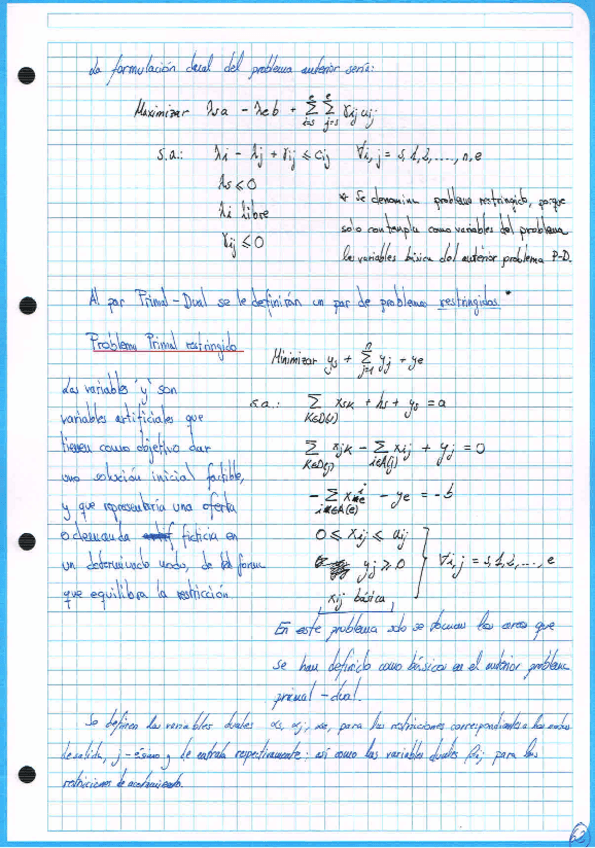 La formulación dual del problema anterior sería:
Maximizar λsa - λeb + Σ Σ γij aij
i=s j=s
s.a.: λi - λj + γij ≤ cij ∀i,j = s,1,2,....,n,e
λs ≤ 0
λi libre
γij ≤ 0
* Se denomina problema restringido, porque
solo contempla como variables del problema
las variables básica del anterior problema P-D.
Al par Primal-Dual se le definirán un par de problemas restringidos *
Problema Primal restringido
Minimizar ys + Σ yj + ye
n
j=1
Las variables 'y' son
variables artificiales que
tienen como objetivo dar
una solución inicial factible,
y que representaría una oferta
o demanda ficticia en
un determinado nodo, de forma
que equilibra la restricción
s.a.: Σ xsk + hs + ys = a
K∈D(s)
Σ xjk - Σ xij + yj = 0
K∈D(j) i∈A(j)
- Σ xie - ye = -b
i∈A(e)
0 ≤ xij ≤ aij
yj ≥ 0 ∀i,j = s,1,2,...,e
xij básica
En este problema solo se toman los arcos que
se han definido como básicos en el anterior problema
primal-dual.
Se definen las variables duales αs, αj, αe, para las restricciones correspondientes a los nodos
de salida, j-ésimo y de entrada respectivamente; así como las variables duales βij para las
restricciones de acotamiento.
62